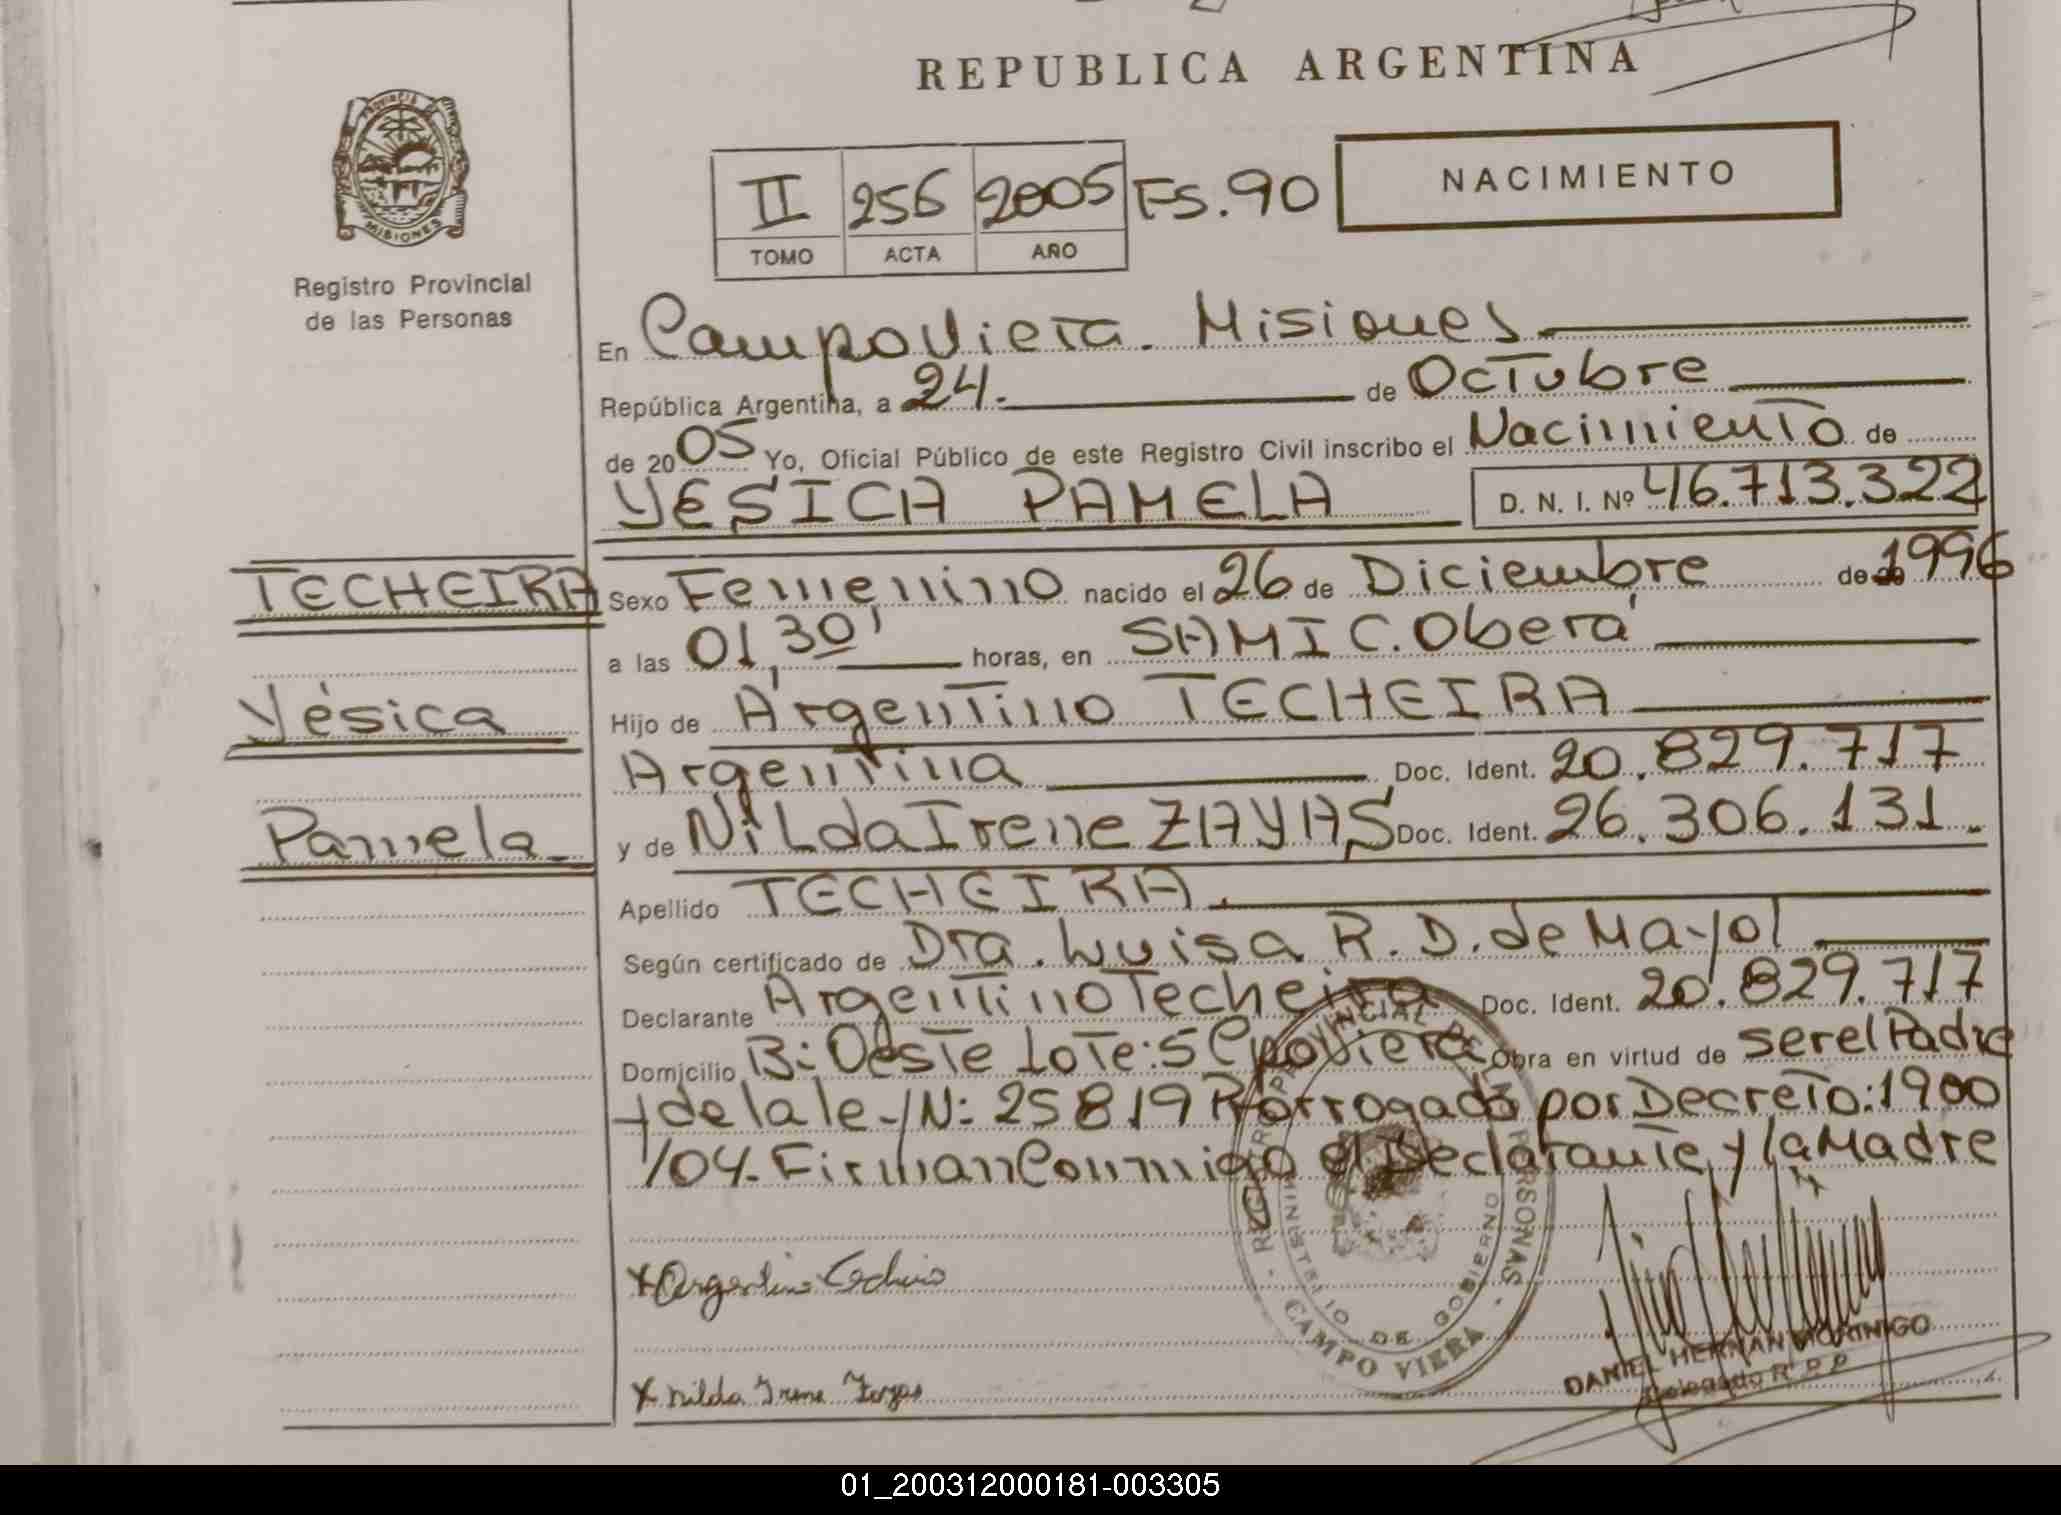 REPUBLICA ARGENTINA
PROVINCIA DE
MISIONES
Registro Provincial
de las Personas
II 256 2005 Fs. 90
TOMO ACTA AÑO
NACIMIENTO
En Campo Viera. Misiones
República Argentina, a 24. de Octubre
de 2005 Yo, Oficial Público de este Registro Civil inscribo el Nacimiento de
YESICA PAMELA D. N. I. Nº 46.713.322
TECHEIRA
Yésica
Pamela
Sexo Femenino nacido el 26 de Diciembre de 1996
a las 01,30' horas, en SAMIC. Oberá
Hijo de Argentino TECHEIRA
Argentina Doc. Ident. 20.829.717
y de Nilda Irene ZAYAS Doc. Ident. 26.306.131.
Apellido TECHEIRA.
Según certificado de Dra. Luisa R. D. de Mayol
Declarante Argentino Techeira Doc. Ident. 20.829.717
Domicilio B: Oeste Lote: 5 Cpo Viera Obra en virtud de ser el Padre
+ de la ley N: 25819 Prorrogado por Decreto: 1900
/04. Firman Conmigo el Declarante y la Madre
REGISTRO PROVINCIAL DE PERSONAS
MINISTERIO DE GOBIERNO
CAMPO VIERA
x Argentino
x Nilda Irene Zayas
DANIEL HERNAN MORINIGO
Delegado R. P. P.
01_200312000181-003305